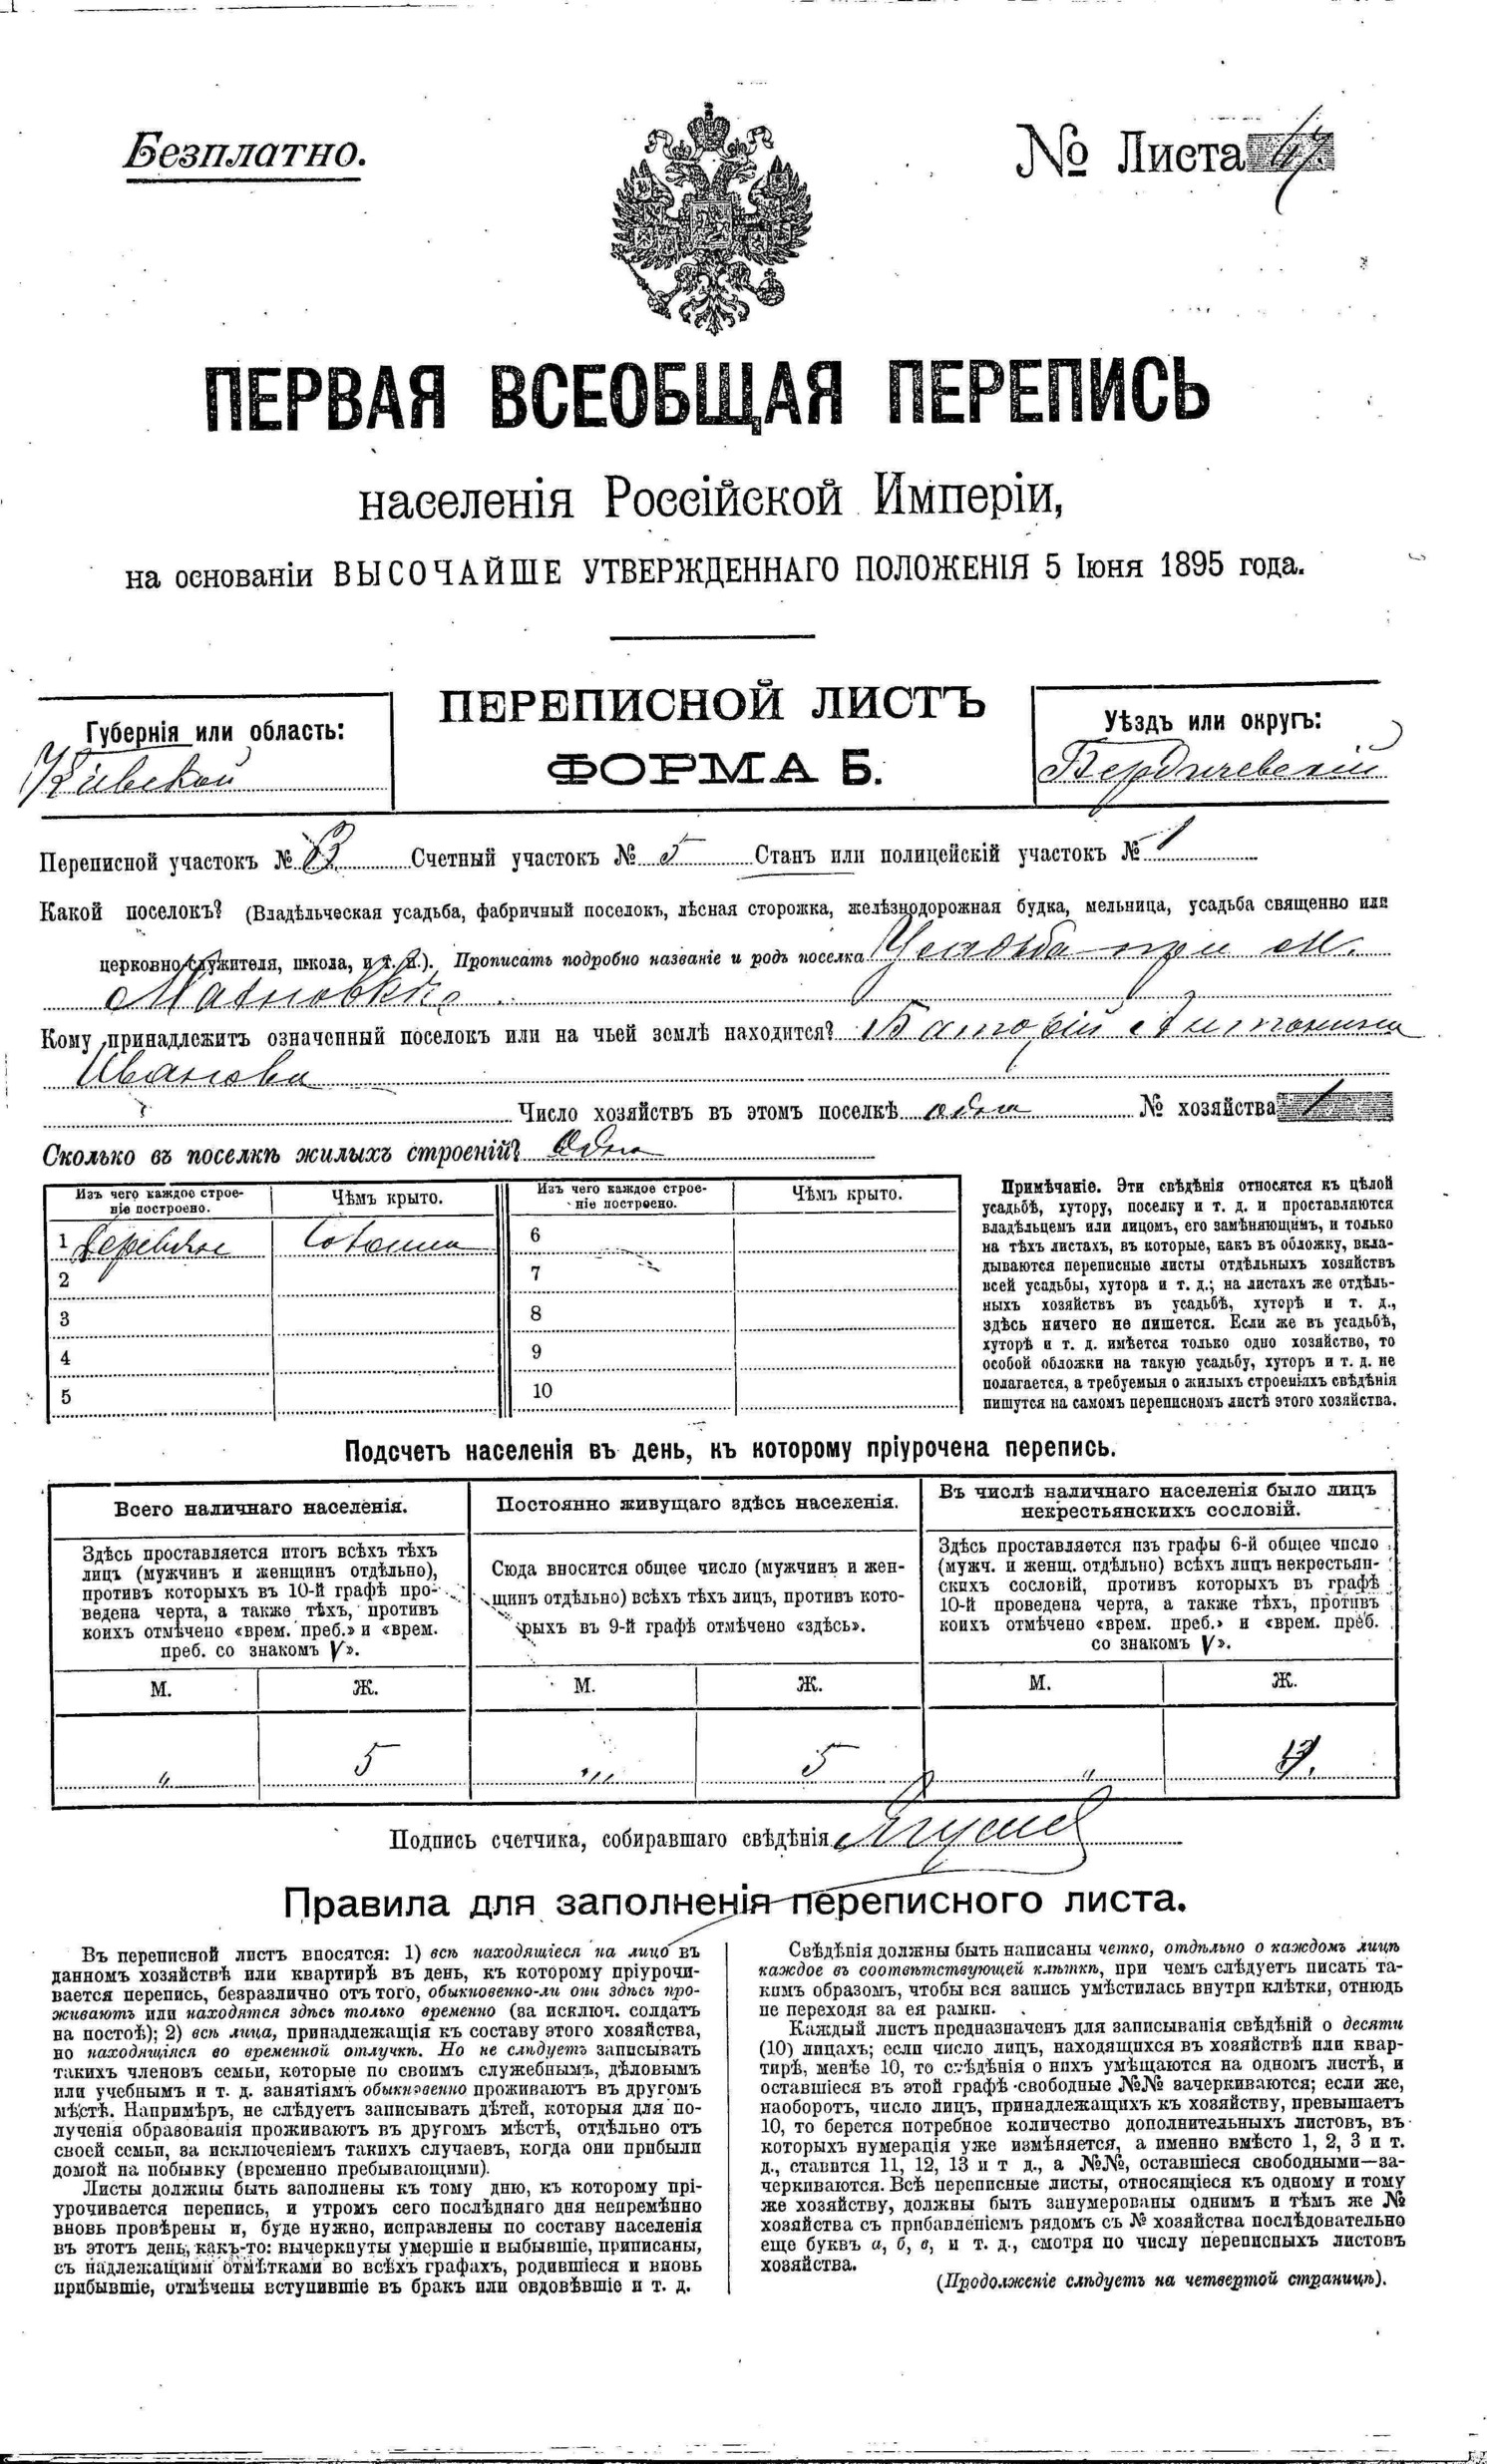 Безплатно.
№ Листа 47.
ПЕРВАЯ ВСЕОБЩАЯ ПЕРЕПИСЬ
населенія Россійской Имперіи,
на основаніи ВЫСОЧАЙШЕ УТВЕРЖДЕННАГО ПОЛОЖЕНІЯ 5 Іюня 1895 года.
ПЕРЕПИСНОЙ ЛИСТЪ
ФОРМА Б.
Губернія или область:
Кіевской
Уѣздъ или округъ:
Бердичевскій
Переписной участокъ № Счетный участокъ № 5 Станъ или полицейскій участокъ № 1
Какой поселокъ? (Владѣльческая усадьба, фабричный поселокъ, лѣсная сторожка, желѣзнодорожная будка, мельница, усадьба священно или
церковно-служителя, школа, и т. п.). Прописать подробно названіе и родъ поселка Усадьба при м.
Махновкѣ
Кому принадлежитъ означенный поселокъ или на чьей землѣ находится? Антонина
Иванова
Число хозяйствъ въ этомъ поселкѣ одно № хозяйства 1
Сколько въ поселкѣ жилыхъ строеній? Одно
Изъ чего каждое строе-
ніе построено.
Чѣмъ крыто.
Изъ чего каждое строе-
ніе построено.
Чѣмъ крыто.
1 Деревяное Соломою
2
3
4
5
6
7
8
9
10
Примѣчаніе. Эти свѣдѣнія относятся къ цѣлой
усадьбѣ, хутору, поселку и т. д. и проставляются
владѣльцемъ или лицомъ, его замѣняющимъ, и только
на тѣхъ листахъ, въ которые, какъ въ обложку, вкла-
дываются переписные листы отдѣльныхъ хозяйствъ
всей усадьбы, хутора и т. д.; на листахъ же отдѣль-
ныхъ хозяйствъ въ усадьбѣ, хуторѣ и т. д.,
здѣсь ничего не пишется. Если же въ усадьбѣ,
хуторѣ и т. д. имѣется только одно хозяйство, то
особой обложки на такую усадьбу, хуторъ и т. д. не
полагается, а требуемыя о жилыхъ строеніяхъ свѣдѣнія
пишутся на самомъ переписномъ листѣ этого хозяйства.
Подсчетъ населенія въ день, къ которому пріурочена перепись.
Всего наличнаго населенія.
Здѣсь проставляется итогъ всѣхъ тѣхъ
лицъ (мужчинъ и женщинъ отдѣльно),
противъ которыхъ въ 10-й графѣ про-
ведена черта, а также тѣхъ, противъ
коихъ отмѣчено «врем. преб.» и «врем.
преб. со знакомъ V».
Постоянно живущаго здѣсь населенія.
Сюда вносится общее число (мужчинъ и жен-
щинъ отдѣльно) всѣхъ тѣхъ лицъ, противъ кото-
рыхъ въ 9-й графѣ отмѣчено «здѣсь».
Въ числѣ наличнаго населенія было лицъ
некрестьянскихъ сословій.
Здѣсь проставляется изъ графы 6-й общее число
(мужч. и женщ. отдѣльно) всѣхъ лицъ некрестьян-
скихъ сословій, противъ которыхъ въ графѣ
10-й проведена черта, а также тѣхъ, противъ
коихъ отмѣчено «врем. преб.» и «врем. преб.
со знакомъ V».
М. Ж. М. Ж. М. Ж.
" 5 " 5 "
Подпись счетчика, собиравшаго свѣдѣнія
Правила для заполненія переписного листа.
Въ переписной листъ вносятся: 1) всѣ находящіеся на лицо въ
данномъ хозяйствѣ или квартирѣ въ день, къ которому пріурочи-
вается перепись, безразлично отъ того, обыкновенно-ли они здѣсь про-
живаютъ или находятся здѣсь только временно (за исключ. солдатъ
на постоѣ); 2) всѣ лица, принадлежащія къ составу этого хозяйства,
но находящіяся во временной отлучкѣ. Но не слѣдуетъ записывать
такихъ членовъ семьи, которые по своимъ служебнымъ, дѣловымъ
или учебнымъ и т. д. занятіямъ обыкновенно проживаютъ въ другомъ
мѣстѣ. Напримѣръ, не слѣдуетъ записывать дѣтей, которыя для по-
лученія образованія проживаютъ въ другомъ мѣстѣ, отдѣльно отъ
своей семьи, за исключеніемъ такихъ случаевъ, когда они прибыли
домой на побывку (временно пребывающими).
Листы должны быть заполнены къ тому дню, къ которому прі-
урочивается перепись, и утромъ сего послѣдняго дня непремѣнно
вновь провѣрены и, буде нужно, исправлены по составу населенія
въ этотъ день, какъ-то: вычеркнуты умершіе и выбывшіе, приписаны,
съ надлежащими отмѣтками во всѣхъ графахъ, родившіеся и вновь
прибывшіе, отмѣчены вступившіе въ бракъ или овдовѣвшіе и т. д.
Свѣдѣнія должны быть написаны четко, отдѣльно о каждомъ лицѣ
каждое въ соотвѣтствующей клѣткѣ, при чемъ слѣдуетъ писать та-
кимъ образомъ, чтобы вся запись умѣстилась внутри клѣтки, отнюдь
не переходя за ея рамки.
Каждый листъ предназначенъ для записыванія свѣдѣній о десяти
(10) лицахъ; если число лицъ, находящихся въ хозяйствѣ или квар-
тирѣ, менѣе 10, то свѣдѣнія о нихъ умѣщаются на одномъ листѣ, и
оставшіеся въ этой графѣ свободные №№ зачеркиваются; если же,
наоборотъ, число лицъ, принадлежащихъ къ хозяйству, превышаетъ
10, то берется потребное количество дополнительныхъ листовъ, въ
которыхъ нумерація уже измѣняется, а именно вмѣсто 1, 2, 3 и т.
д., ставится 11, 12, 13 и т д., а №№, оставшіеся свободными—за-
черкиваются. Всѣ переписные листы, относящіеся къ одному и тому
же хозяйству, должны быть занумерованы однимъ и тѣмъ же №
хозяйства съ прибавленіемъ рядомъ съ № хозяйства послѣдовательно
еще буквъ а, б, в, и т. д., смотря по числу переписныхъ листовъ
хозяйства.
(Продолженіе слѣдуетъ на четвертой страницѣ).